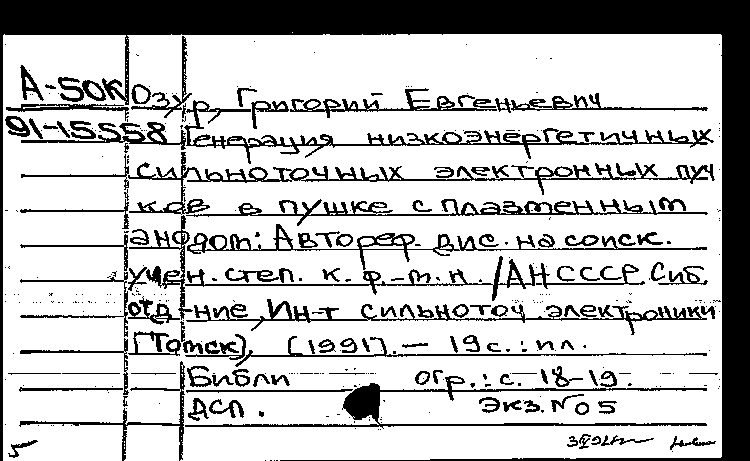 А-50К Озур, Григорий Евгеньевич
91-15558 Генерация низкоэнергетичных
сильноточных электронных пуч
ков в пушке с плазменным
анодом: Автореф. дис. на соиск.
учен. степ. к. ф.-м. н. / АН СССР. Сиб.
отд-ние, Ин-т сильноточ. электроники
(Томск), [1991]. — 19 с. : ил.
Библиогр.: с. 18-19.
ДСП. Экз. № 05